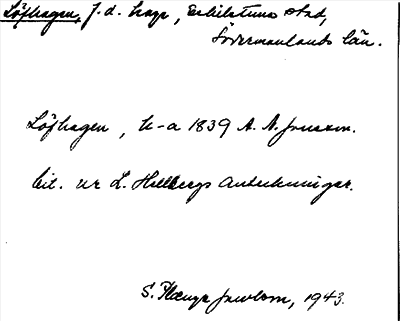 Löfhagen, f.d. hage, Eskilstuna stad,
Södermanlands län.
Löfhagen, h-a 1839 A. A.
cit. ur L. Hellbergs Anteckningar.
S. Plænge Jacobson, 1943.